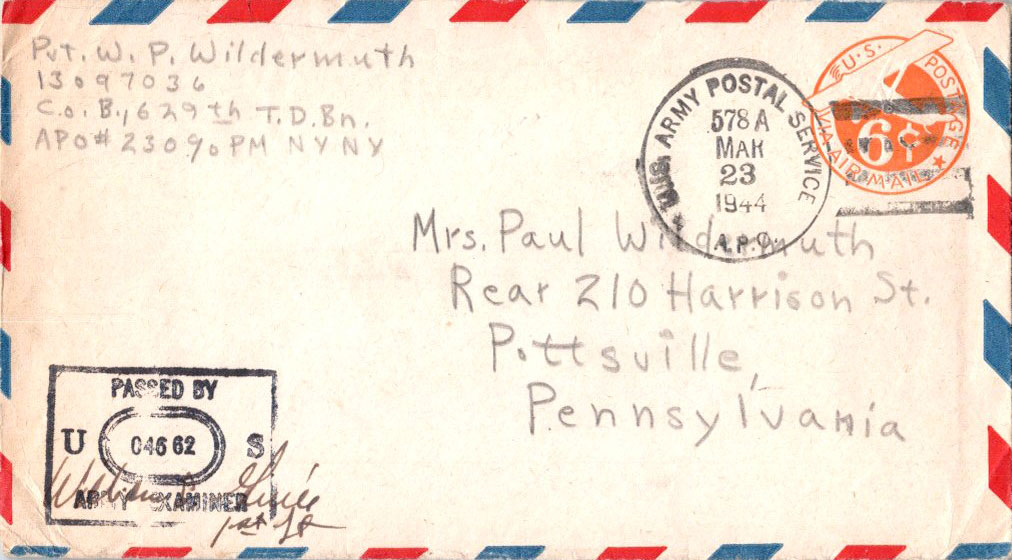 Pvt. W. P. Wildermuth
13097036
Co. B., 629th T.D.Bn.
APO# 230 % PM NYNY
U.S. ARMY POSTAL SERVICE
578A
MAR
23
1944
A.P.O.
U.S. POSTAGE
6¢
VIA AIR MAIL
Mrs. Paul Wildermuth
Rear 210 Harrison St.
Pottsville,
Pennsylvania
PASSED BY
U 04662 S
ARMY EXAMINER
1st Lt